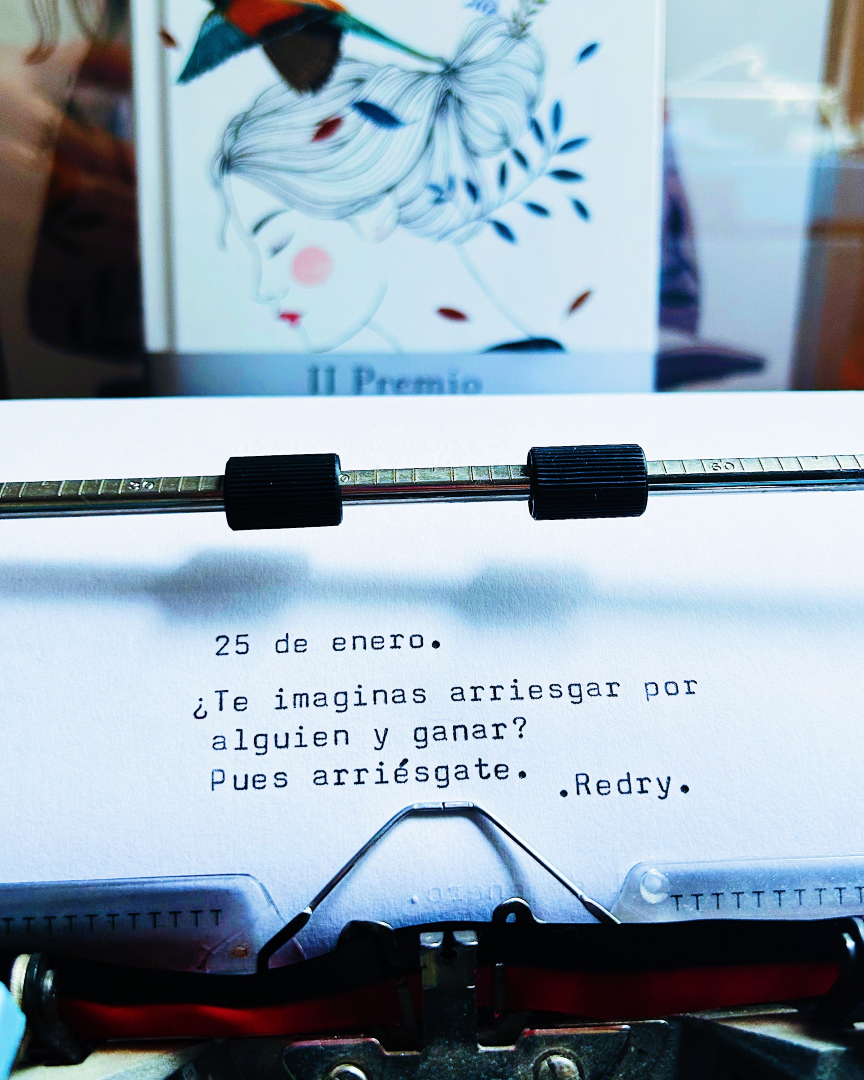 II Premio
25 de enero.
¿Te imaginas arriesgar por
alguien y ganar?
Pues arriésgate.
.Redry.
TTTTTTTTTTTT
TTTTTTTTTTT